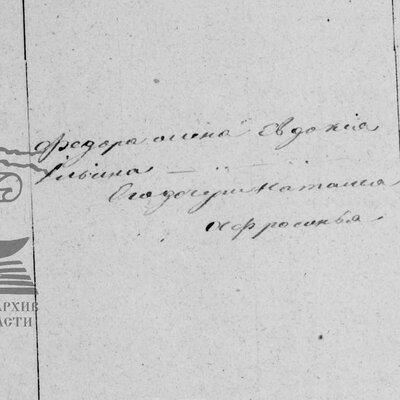 Федора жена Евдокія
Ильина
Его дочери Наталья
Афросинья
АРХИВ
АСТИ